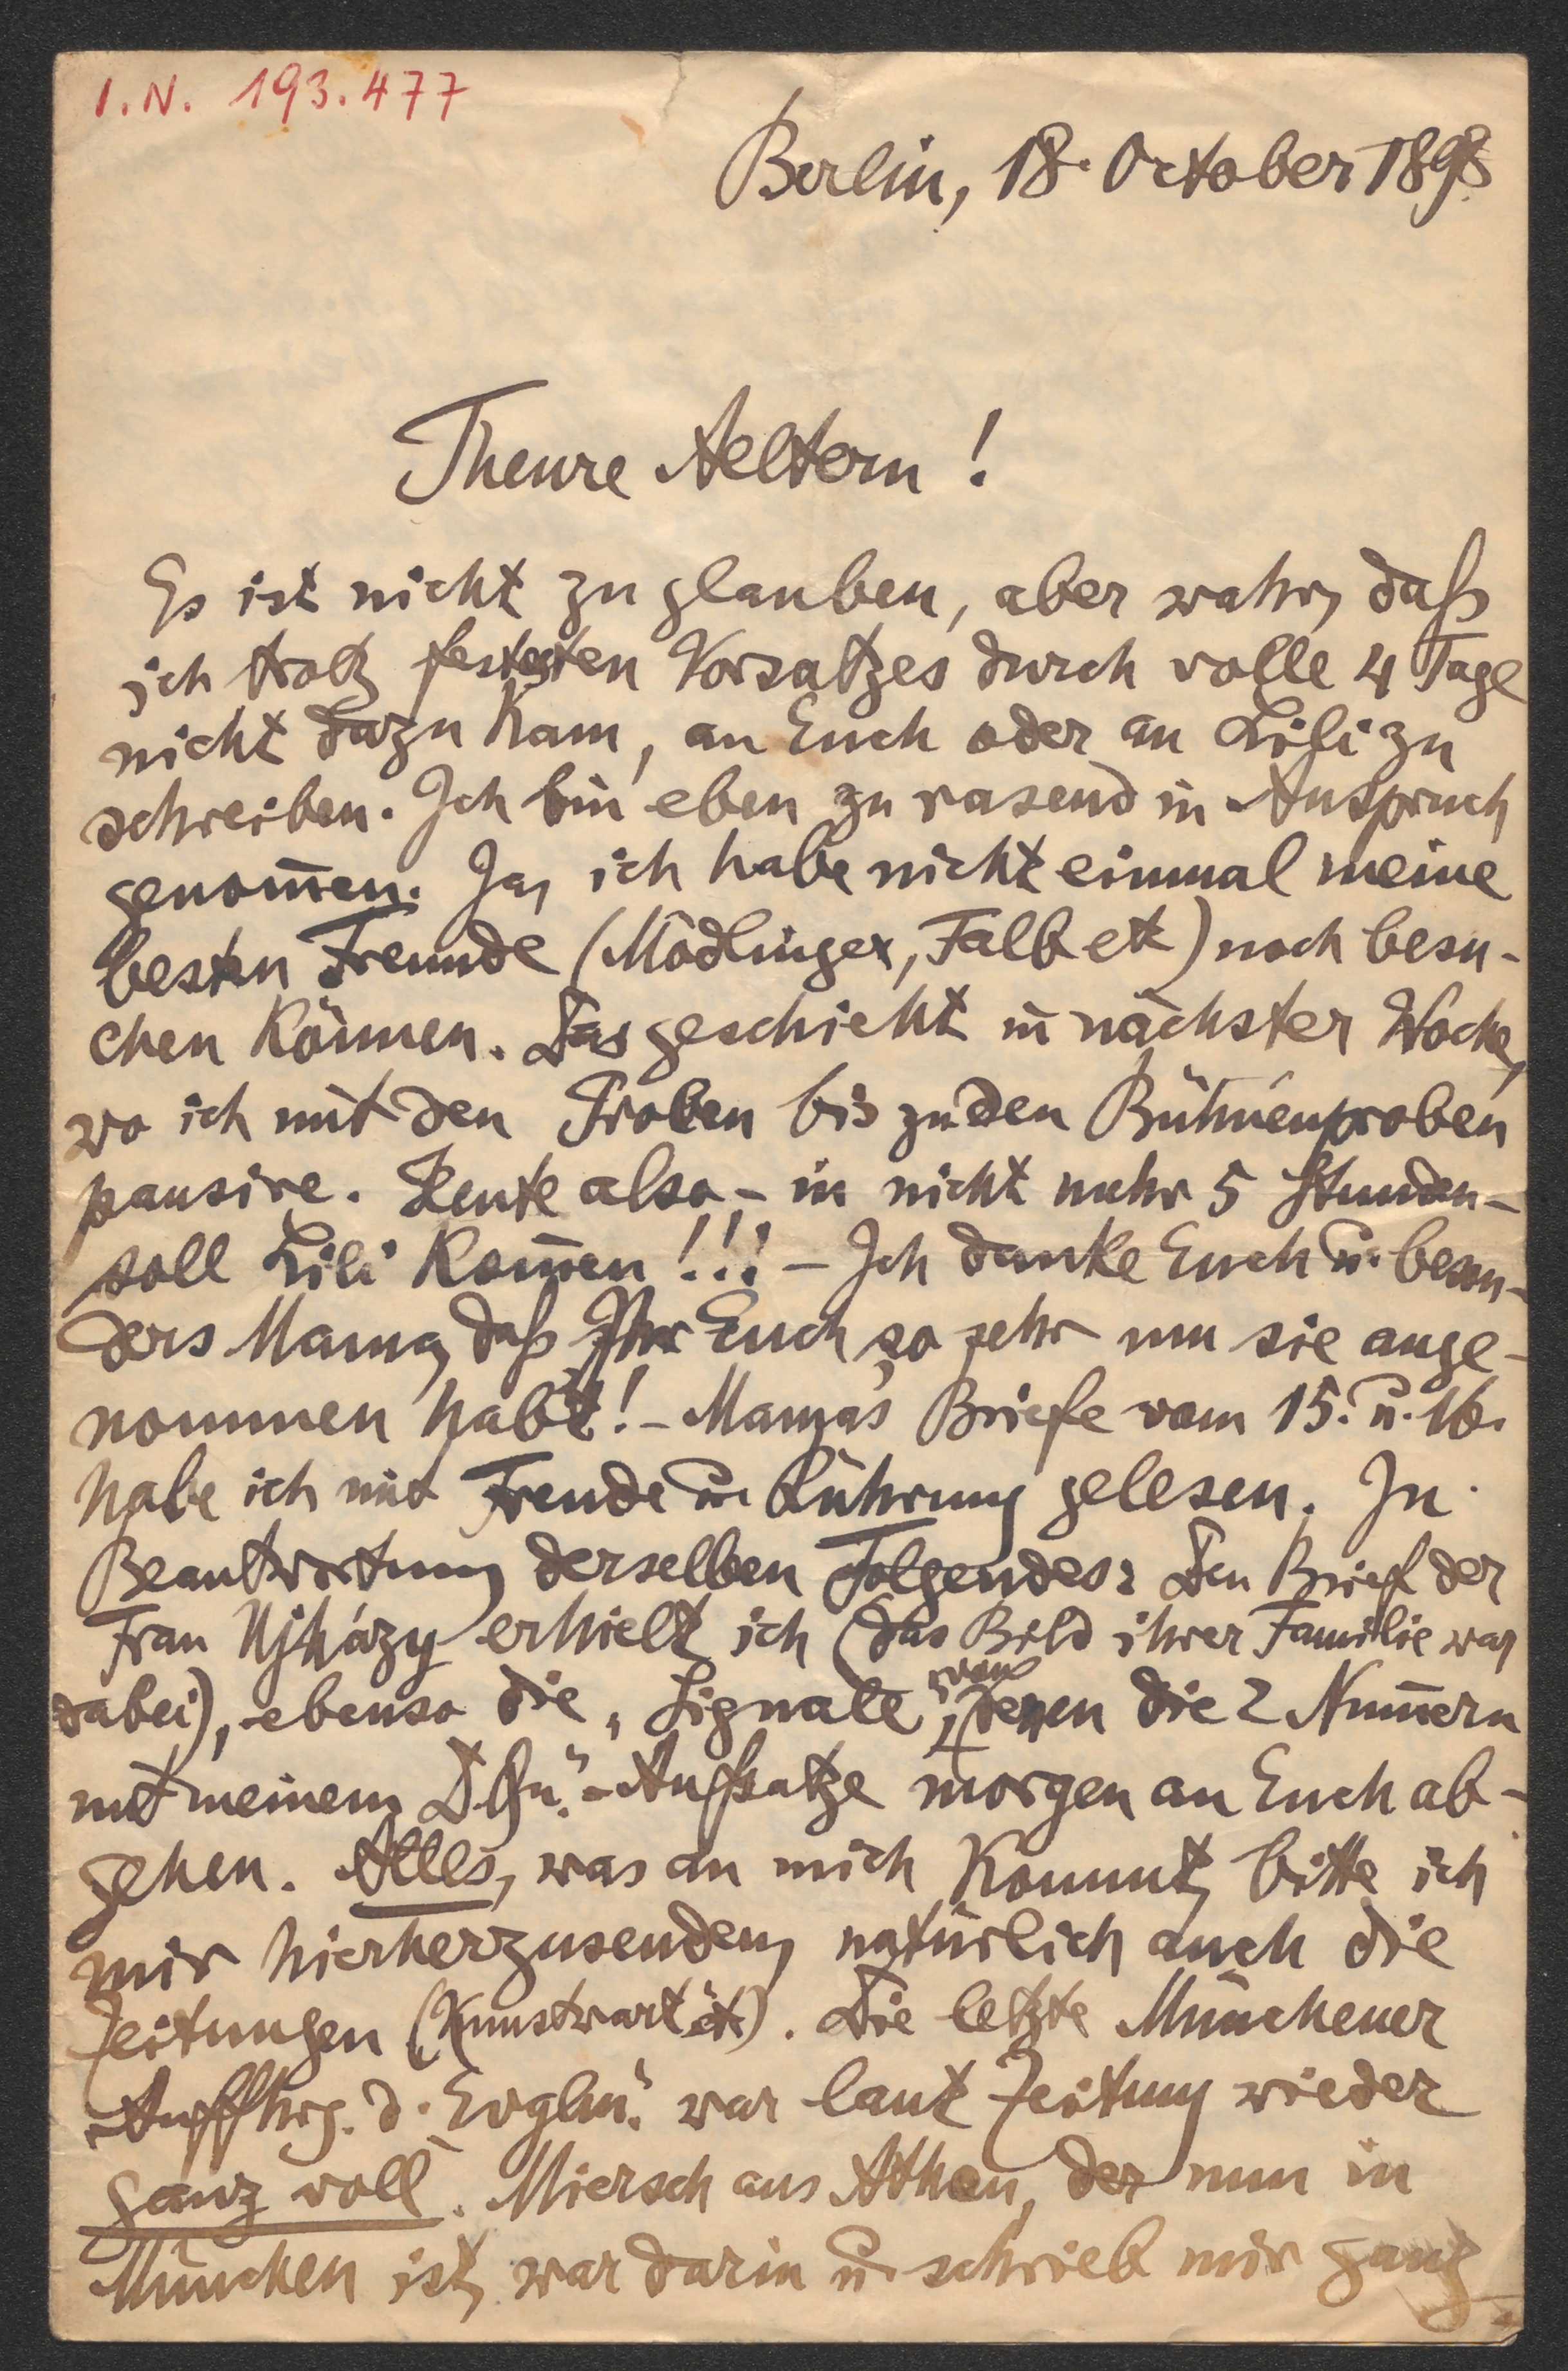 I.N. 193.477
Berlin, 18. October 1898
Theure Aeltern!
Es ist nicht zu glauben, aber wahr, daß
ich trotz festesten Vorsatzes durch volle 4 Tage
nicht dazu kam, an Euch oder an Lili zu
schreiben. Ich bin eben zu rasend in Anspruch
genom̅en. Ja, ich habe nicht einmal meine
besten Freunde (Mödlinger, Falb etc) noch besu-
chen können. Das geschieht in nächster Woche,
wo ich mit den Proben bis zu den Bühnenproben
pausire. Heute also – in nicht mehr 5 Stunden –
soll Lili kom̅en!!! – Ich danke Euch u. beson-
ders Mama, daß Ihr Euch so sehr um sie ange-
nommen habt! – Mama's Briefe vom 15. u. 16.
habe ich mit Freude u. Rührung gelesen. In
Beantwortung derselben Folgendes: Den Brief der
Frau Ujházy erhielt ich (das Bild ihrer Familie war
dabei), ebenso die „Signale", von denen die 2 Num̅ern
mit meinem D.Gn."-Aufsatze morgen an Euch ab-
gehen. Alles, was an mich kommt, bitte ich
mir hierherzusenden, natürlich auch die
Zeitungen (Kunstwart etc). Die letzte Münchener
Auffhrg. d. Evglm." war laut Zeitung wieder
ganz voll. Miersch aus Athen, der nun in
München ist, war darin u. schrieb mir ganz